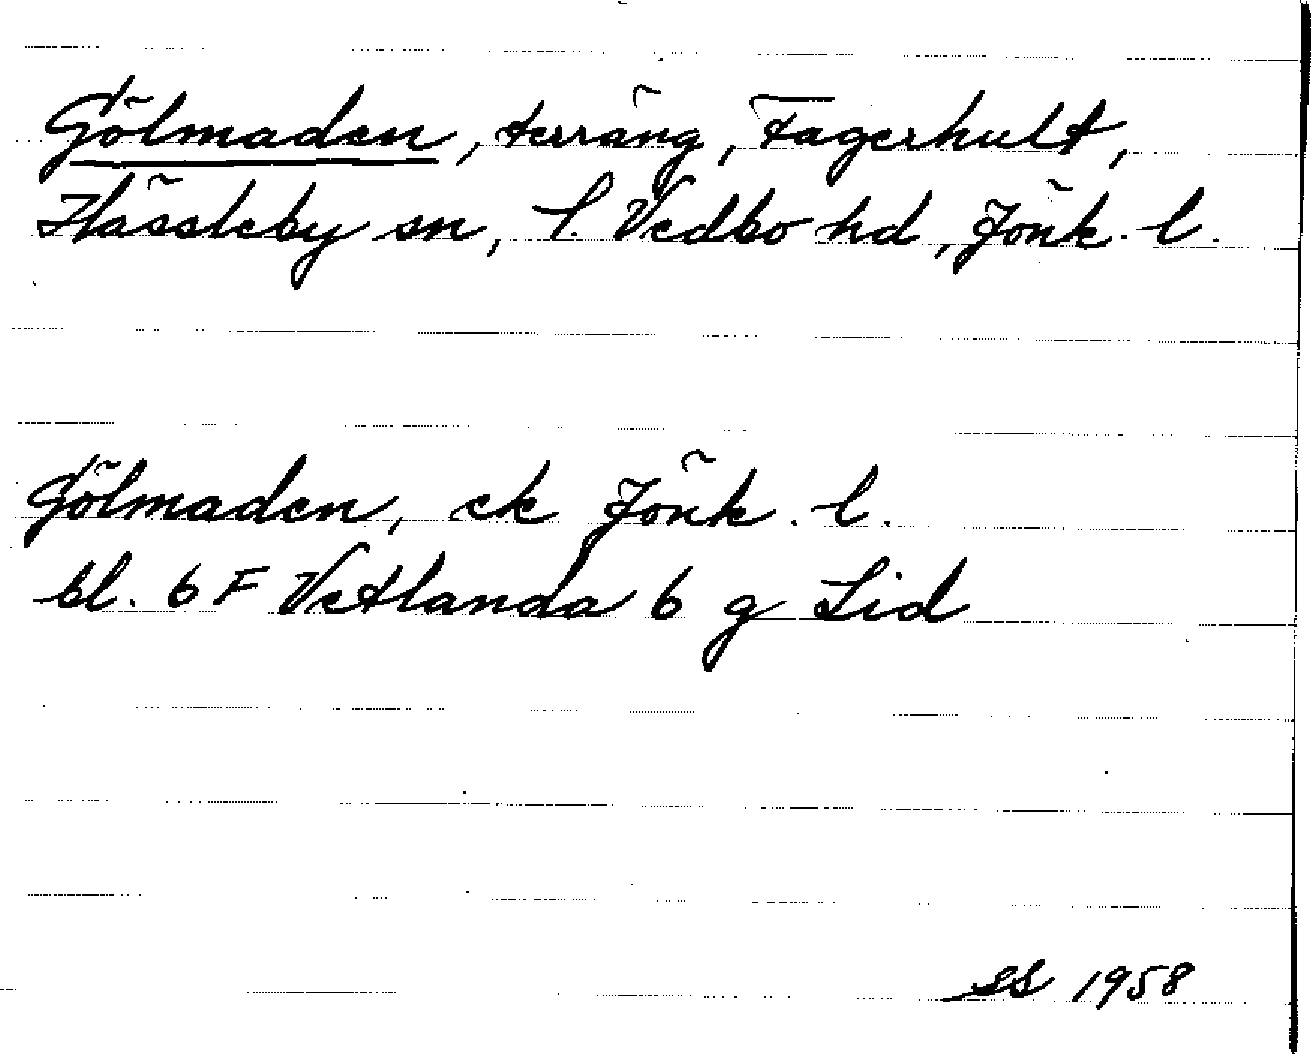 Gölmaden, terräng, Fagerhult,
Hässleby sn, S. Vedbo hd, Jönk. l.
Gölmaden, ek Jönk. l.
bl. 6 F Vetlanda 6 g Lid
SS 1958